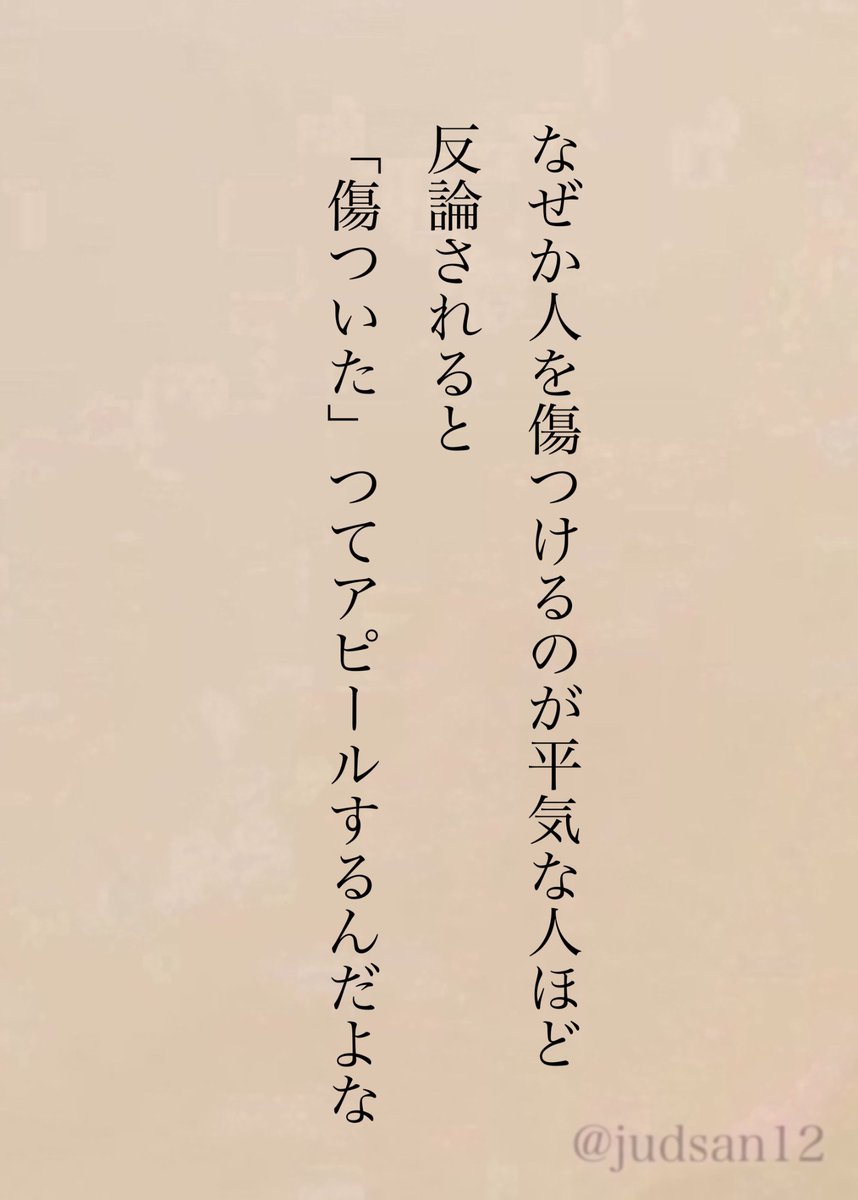 なぜか人を傷つけるのが平気な人ほど
反論されると
「傷ついた」つてアピールするんだよな
@judsan12